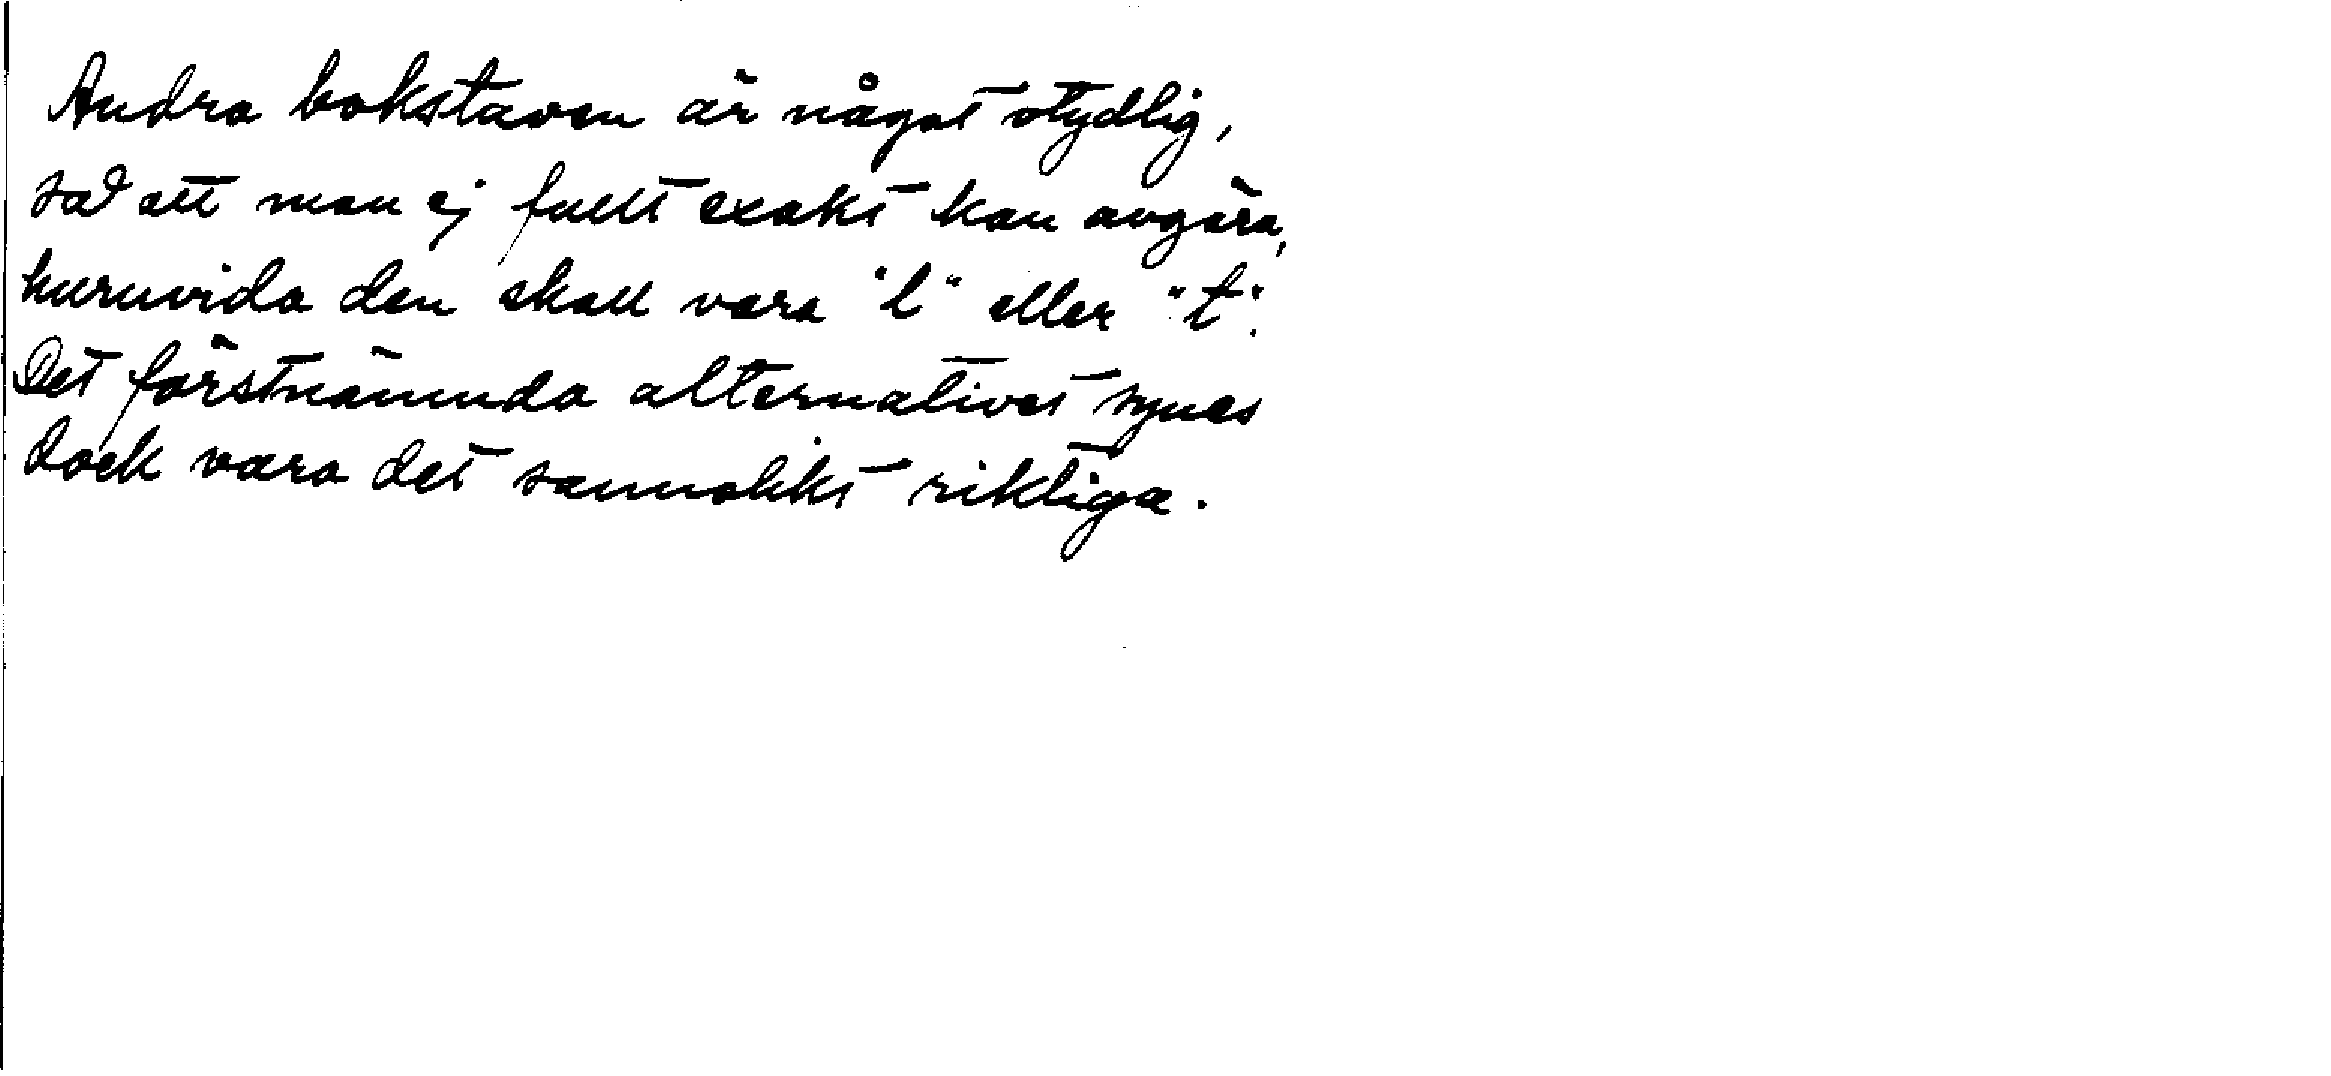 Andra bokstaven är något otydlig,
så att man ej fullt exakt kan avgöra,
huruvida den skall vara "l" eller "t".
Det förstnämnda alternativet synes
dock vara det sannolikt riktiga.